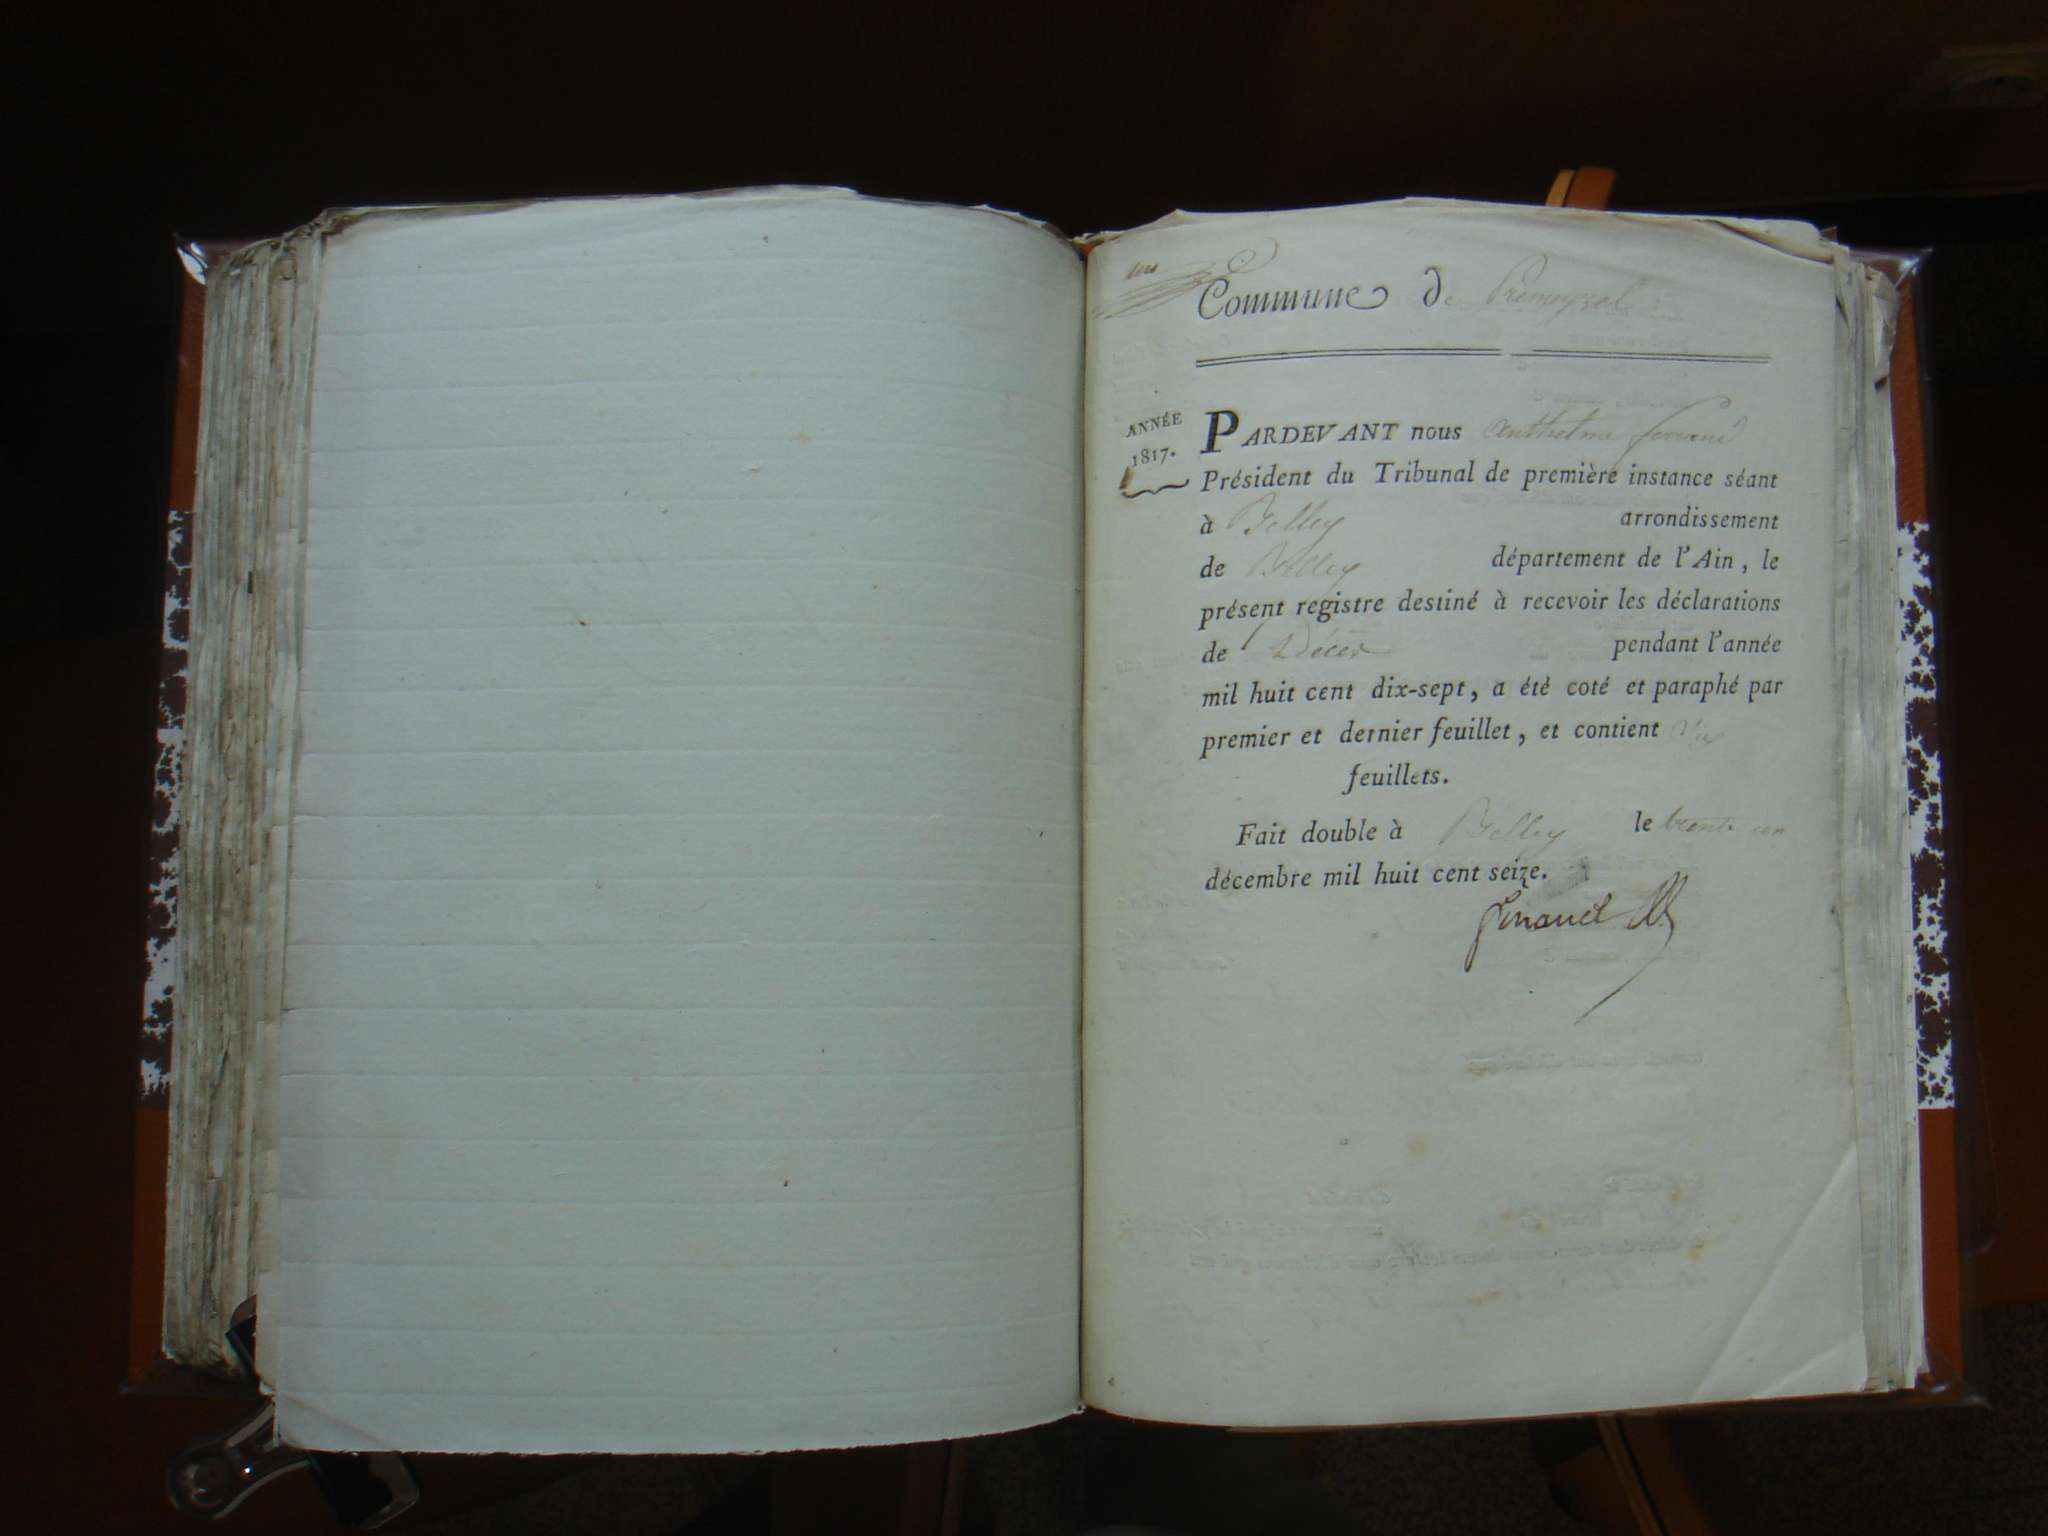 Commune de Premeyzel
ANNÉE
1817.
PARDEVANT nous Anthelme
Président du Tribunal de première instance séant
à Belley arrondissement
de Belley département de l'Ain, le
présent registre destiné à recevoir les déclarations
de Décès pendant l'année
mil huit cent dix-sept, a été coté et paraphé par
premier et dernier feuillet, et contient
feuillets.
Fait double à Belley le trente un
décembre mil huit cent seize.